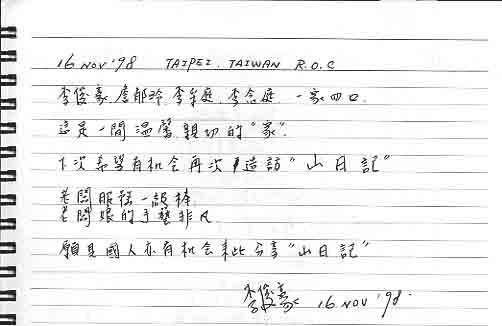 16 NOV '98 TAIPEI. TAIWAN R.O.C
李俊豪 李 庭 李念庭 一家四口.
這是一間溫馨親切的"家".
下次希望有机会再次造訪"山日記"
老闆服務一級棒
老闆娘的手藝非凡
願見國人亦有机会來此分享"山日記"
李俊豪 16 NOV '98.